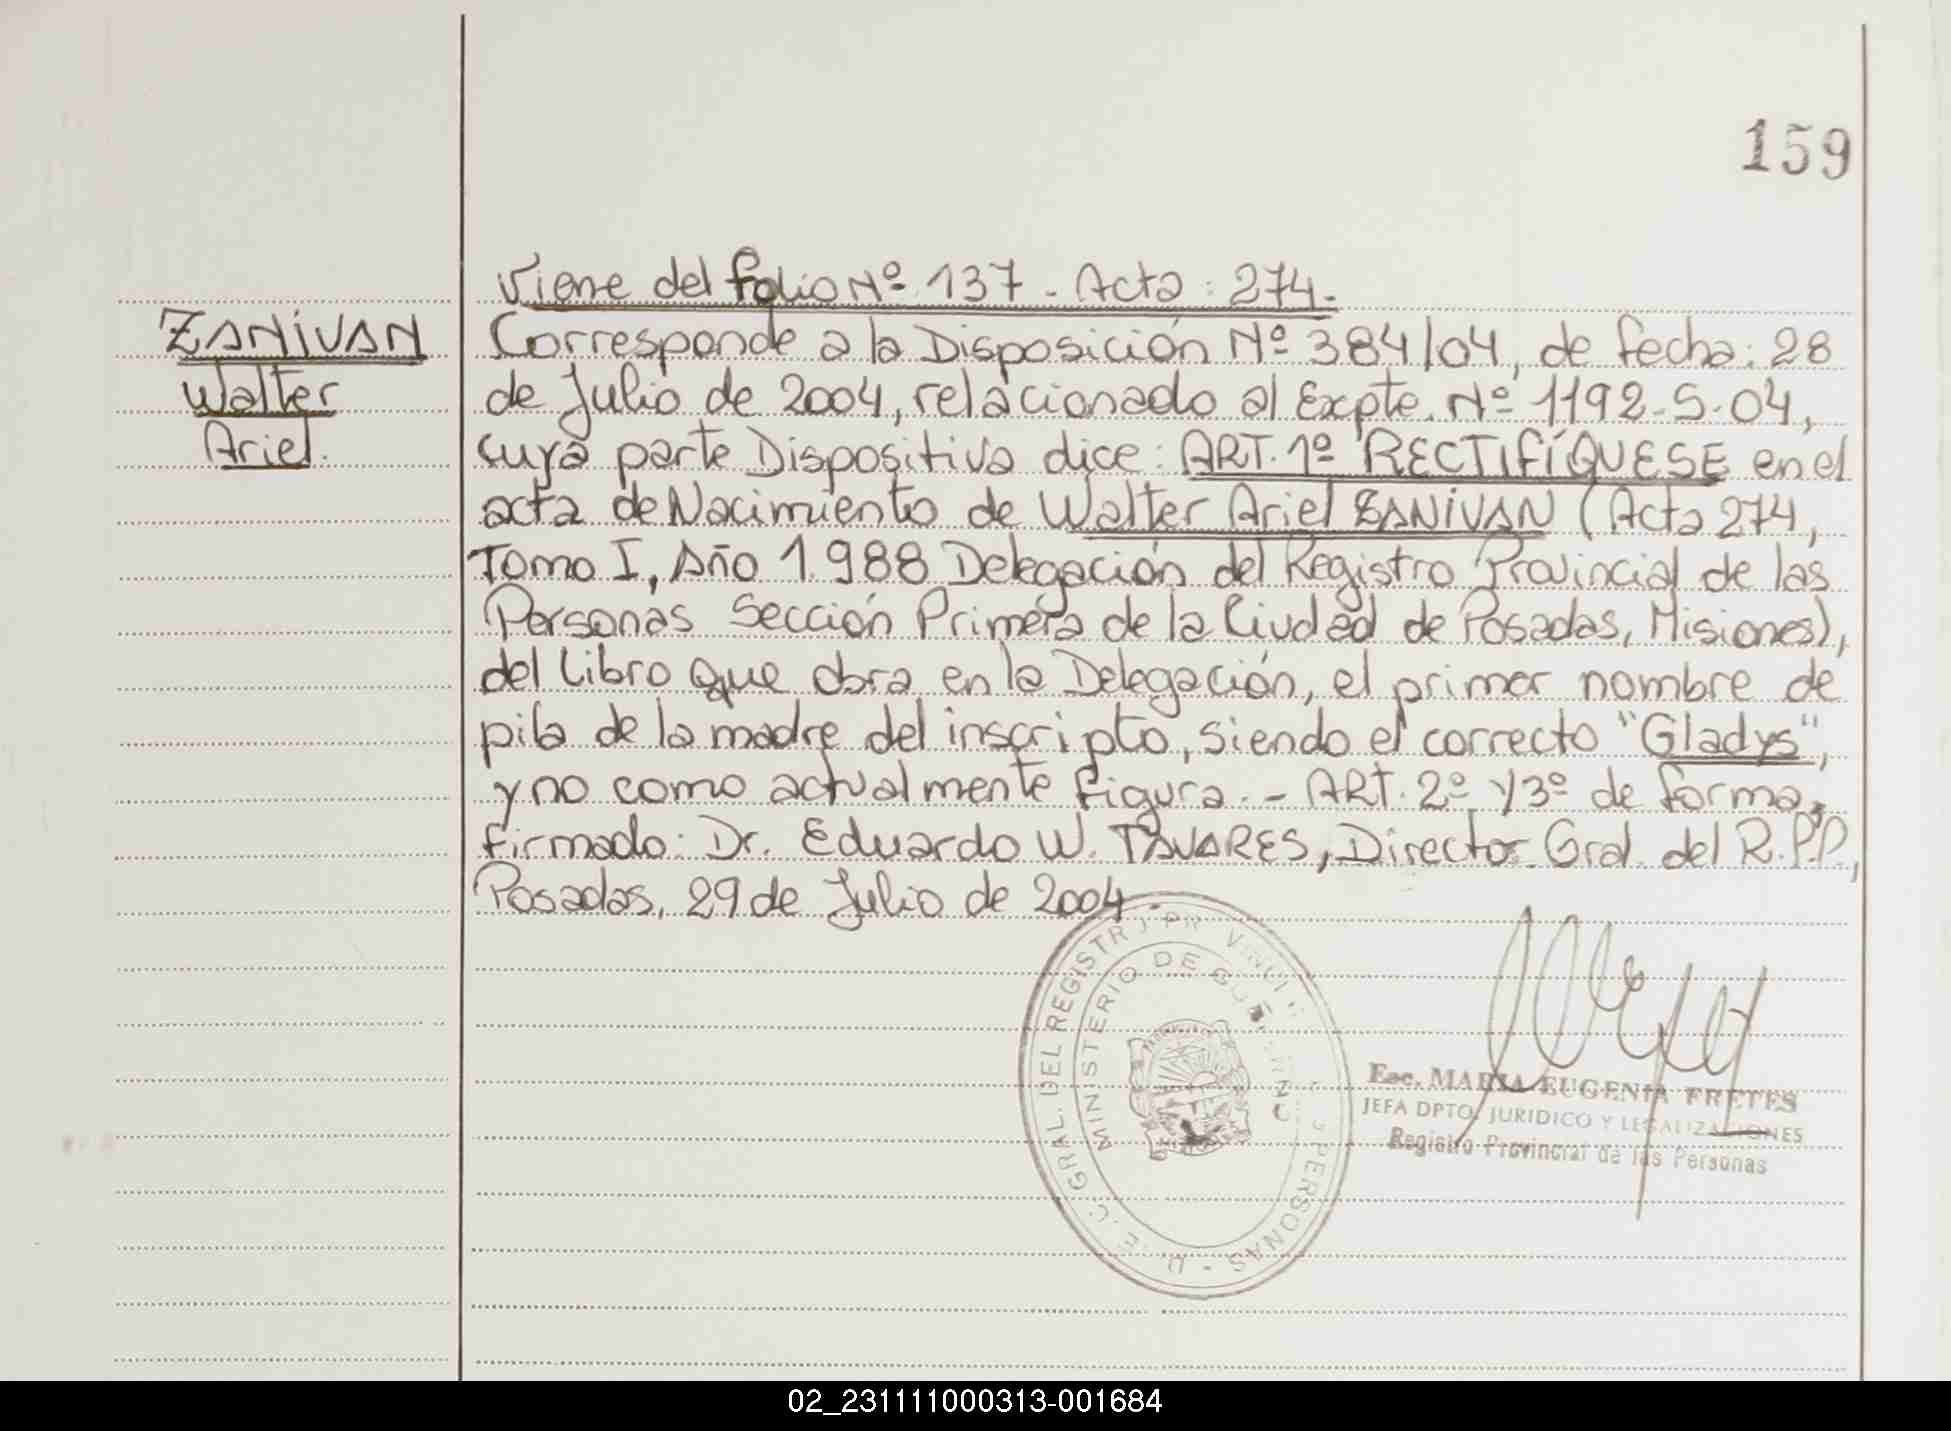 159
Viene del folio Nº 137 - Acta: 274.-
ZANIVAN
Walter
Ariel.
Corresponde a la Disposición Nº 384/04, de fecha: 28
de Julio de 2004, relacionado al Expte. Nº 1192-S-04,
cuya parte Dispositiva dice: ART. 1º RECTIFÍQUESE en el
acta de Nacimiento de Walter Ariel ZANIVAN (Acta 274,
Tomo I, Año 1.988 Delegación del Registro Provincial de las
Personas Sección Primera de la Ciudad de Posadas, Misiones),
del libro que obra en la Delegación, el primer nombre de
pila de la madre del inscripto, siendo el correcto "Gladys",
y no como actualmente figura.- ART. 2º y 3º de forma,
firmado: Dr. Eduardo W. TAVARES, Director Gral. del R.P.P.,
Posadas, 29 de Julio de 2004.-
GRAL. DEL REGISTRO PROVINCIAL PERSONAS
MINISTERIO DE GOBIERNO
Esc. MARIA EUGENIA FRETES
JEFA DPTO. JURIDICO Y LEGALIZACIONES
Registro Provincial de las Personas
02_231111000313-001684